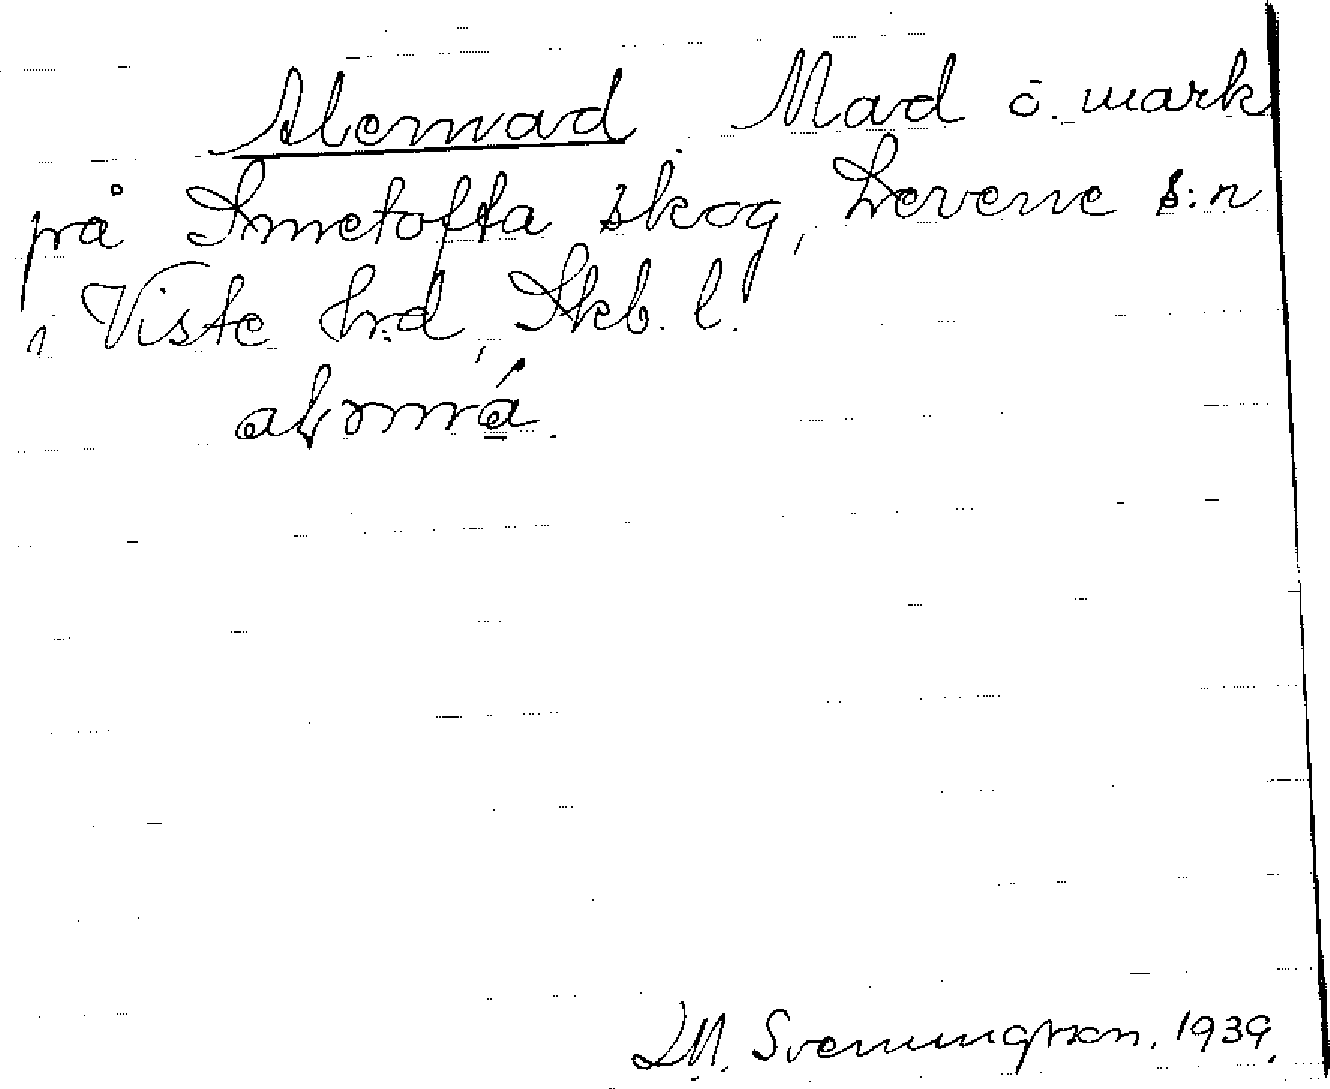 Alemad Mad o. mark
på Smetofta skog, Levene s:n
i Viste hrd, Skb. l.
L M. Svenungsson. 1939.